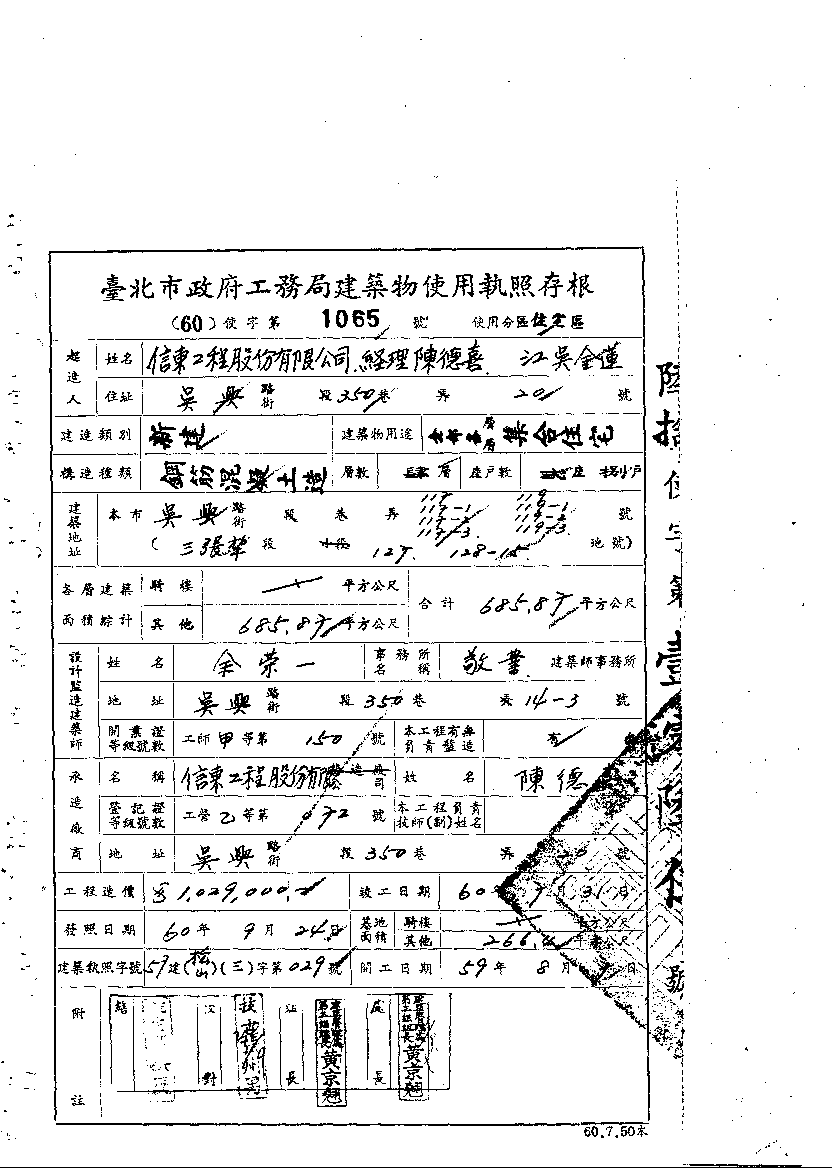 臺北市政府工務局建築物使用執照存根
(60)使字第 1065 號 使用分區住宅區
起造人 姓名 信東工程股份有限公司 經理陳德喜 江吳金蓮
住址 吳興 路街 段 350 巷 弄 20 號
建造類別 新建 建築物用途 集合住宅
構造種類 鋼筋混凝土造 層數 層 座戶數 座 戶
建築地址 本市 吳興 路街 段 巷 弄 號
( 三張犂 段 小段 127 128-15 地號)
各層建築面積綜計 騎樓 平方公尺 合計 685.87 平方公尺
其他 685.87 平方公尺
設計監造建築師 姓名 余榮一 事務所名稱 敬業 建築師事務所
地址 吳興 路街 段 350 巷 弄 14-3 號
開業證等級號數 工師甲等第 150 號 本工程有無負責監造 有
承造廠商 名稱 信東工程股份有限 公司 姓名 陳德
登記證等級號數 工營乙等第 072 號 本工程負責技師(副)姓名
地址 吳興 路街 段 350 巷 弄 20 號
工程造價 1,029,000 竣工日期 60 年 7 月 31 日
發照日期 60 年 9 月 24 日 基地面積 騎樓 平方公尺
其他 266. 平方公尺
建築執照字號 59 建(松山)(三)字第 029 號 開工日期 59 年 8 月 日
附註 校對 股長 黃京翹 處長 黃京翹
60.7.50本
陸拾使字第壹 號